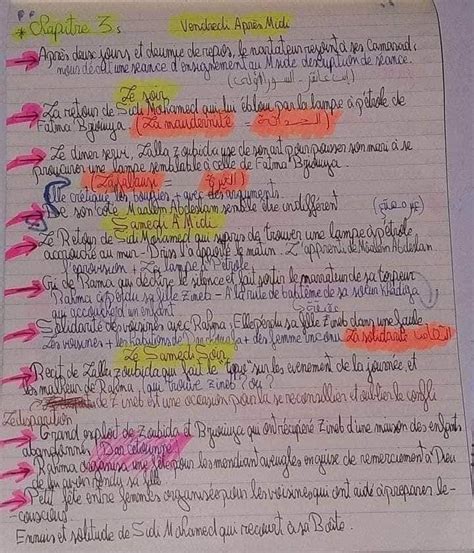 * Chapitre 3: Vendredi Après Midi
Après deux jours et demie de repos, le narrateur rejoint ses Camarad.
nous décrit une séance d'enseignement au Msside description de séance.
Le soir
La retour de Sidi Mohamed qui lui éblou par la lampe à pétrole de
Fatma Bziouiya. (La maudernité =
Le diner servi, Lalla Zoubida use de son art pour pousser son mari à se
procurer une lampe semblable à celle de Fatma Bziouiya.
Elle critique les bougies avec des arguments.
De son coté Maalem Abdeslam semble etre indifférent
Samedi A Midi
Le Retour de Sidi Mohamed qui de trouver une lampe à pétrole,
accrouché au mur - Driss l'a apporté le matin - L'apprenti de Maalem Abdeslam
+ La lampe à Pétrole
Cri de Rama qui déchire le silence et fait sortir le narrateur de sa torpeur
Rahma a perdu sa fille Zineb - A la suite de babtème de sa soeur Khadija
qui accouché un enfant
Solidarité des voisines avec Rahma, Elle perdu sa fille Zineb dans une foule
Les voisines + les habitons de + des femme inconnu La solidarité
Le Samedi Soir
Récit de Lalla Zoubida qui fait le "type" sur les évenement de la journée et
les malheur de Rahma, (qui trouve Zineb? Où?
de Zineb est une occasion pour la se reconsollier et oublier le confli
La disparition
Grand exploit de Zoubida et Bziouiya qui ont récupéré Zineb d'une maison des enfants
abandonnés
Rahma organisa une fête pour les mendiant aveugles en guise de remerciement à Dieu
de lui avoir rendu sa fille
Petit fête entre femmes organisée pour les voisines qui ont aidé à préparer le
couscous.
Ennuis et solitude de Sidi Mohamed qui recourt à sa Boite.